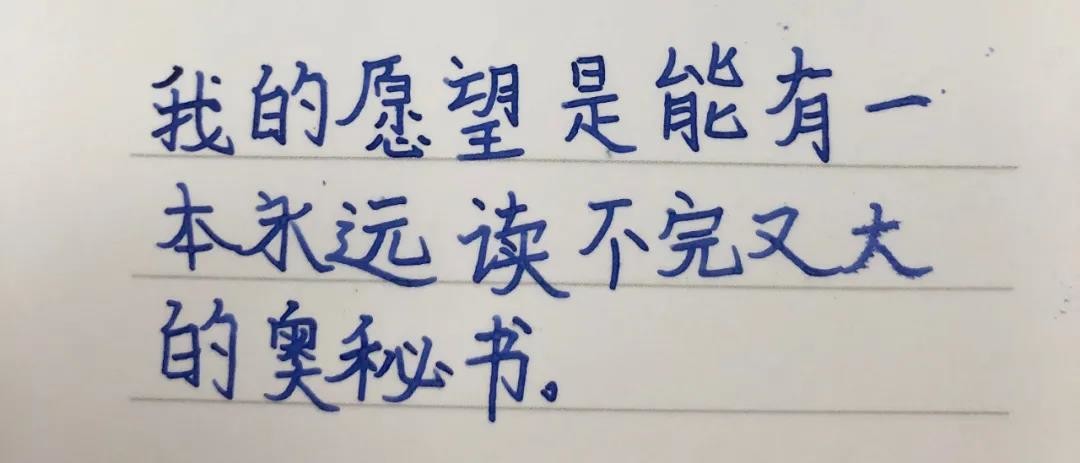 我的愿望是能有一
本永远读不完又大
的奥秘书。